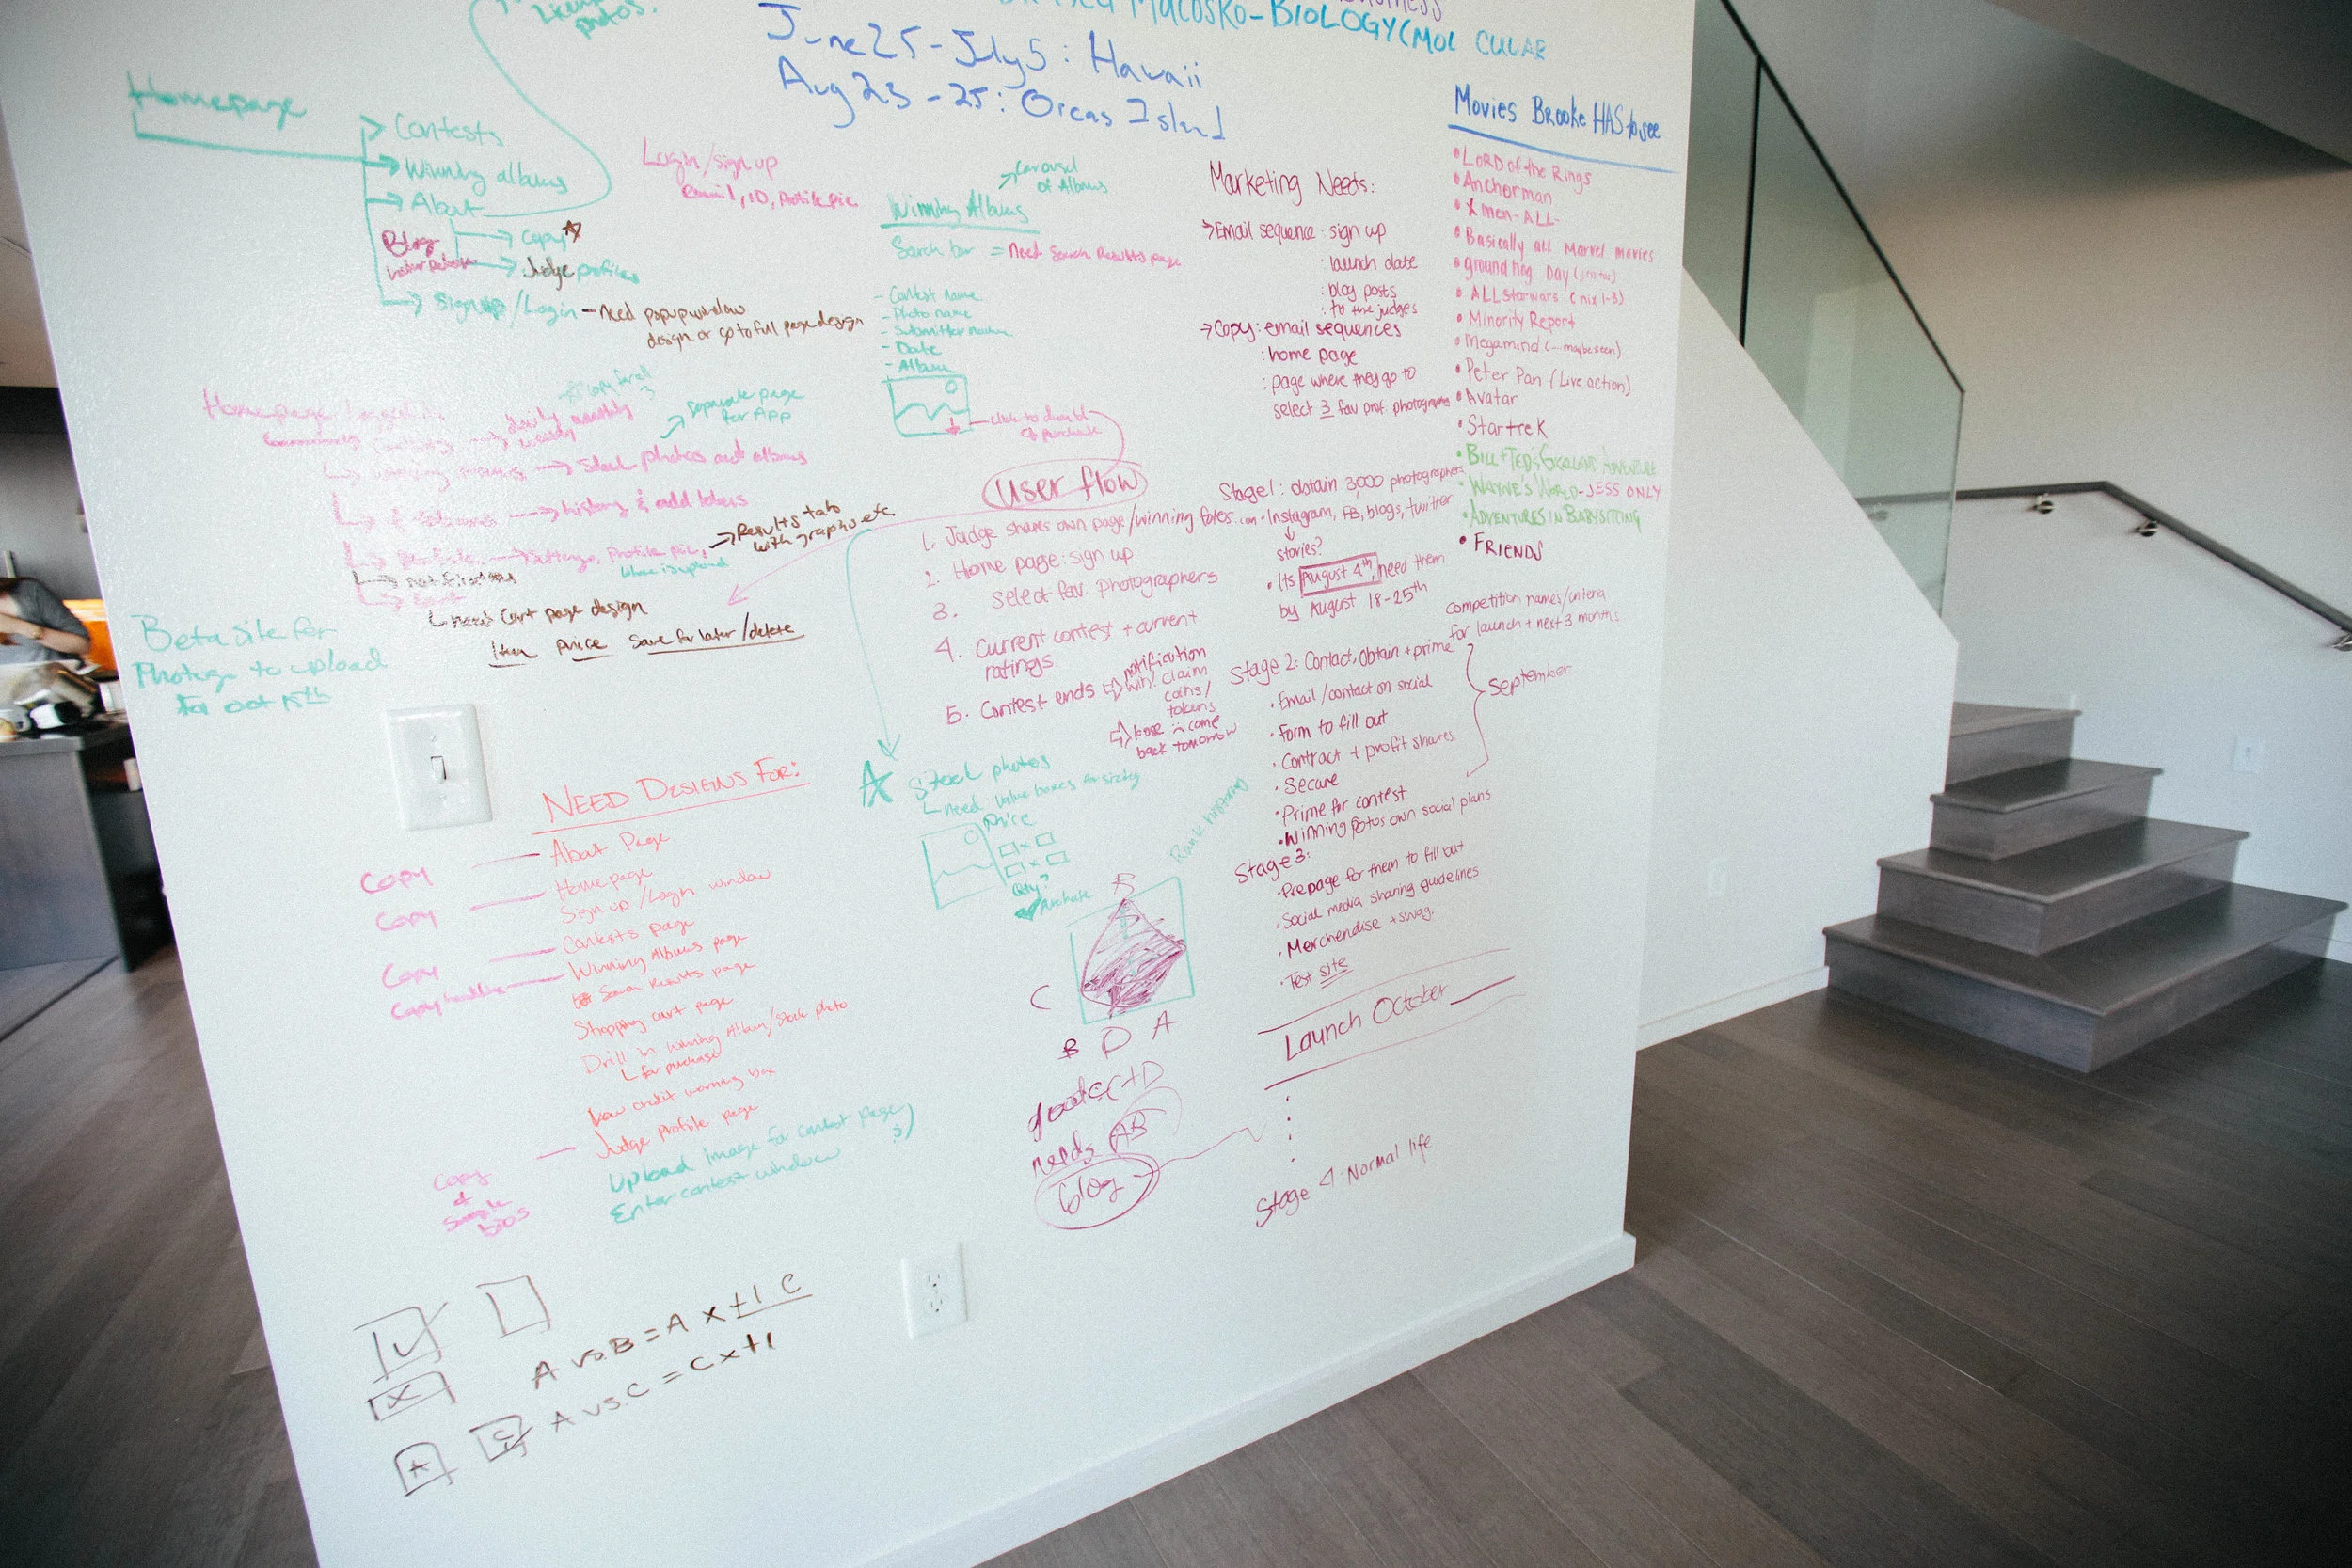 photos.
Macosko-BIOLOGY (MOL CULAR
June 25-July 5: Hawaii
Aug 23-25: Orcas Island
Homepage
Contests
Winning albums
About
Copy
Blog
Judge profiles
Sign up/Login - need popup window
design or go to full page design
Login/sign up
email, ID, Profile pic
Winning Albums
Carousel
of Albums
Search bar = Need Search Results page
- Contest name
- Photo name
- Submitter name
- Date
- Album
click to
purchase
Homepage logged in
daily monthly
weekly
separate page
for App
Stock photos and albums
history & add tokens
Settings, Profile pic,
Results tab
with graphs etc
notifications
need Cart page design
Item Price Save for later/delete
Beta site for
Photogs to upload
For Oct 15th
Marketing Needs:
→Email sequence: sign up
: launch date
: blog posts
: to the judges
→Copy: email sequences
: home page
: page where they go to
select 3 fav prof. photographers
Movies Brooke HAS to see
• LORD of the Rings
• Anchorman
• X men-ALL-
• Basically all Marvel movies
• ground hog Day
• ALL Starwars (nix 1-3)
• Minority Report
• Megamind (-maybe seen)
• Peter Pan (Live action)
• Avatar
• Startrek
• BILL + TED'S EXCELLENT ADVENTURE
• WAYNE'S WORLD-JESS ONLY
• ADVENTURES IN BABYSITTING
• FRIENDS
User flow
1. Judge shares own page/winning fotos.com
2. Home page: sign up
3. Select fav. photographers
4. Current contest + current
ratings
5. Contest ends ⇨ notification
win! claim
coins/
tokens
⇨ lose :: come
back tomorrow
Stage 1: obtain 3,000 photographers
• Instagram, FB, blogs, twitter
stories?
• Its August 4th, need them
by August 18-25th
competition names/criteria
for launch + next 3 months
Stage 2: Contact, Obtain + prime
• Email/contact on social
• Form to fill out
• Contract + profit shares
• Secure
• Prime for contest
• Winning fotos own social plans
September
Stage 3:
• Prepage for them to fill out
• Social media sharing guidelines
• Merchendise + swag.
• Test site
Launch October
Stage 4: Normal life
Stock photos
need value boxes for sizing
price
Qty?
Purchase
Rank histogram
B
C
B D A
C+D
nerds AB
blog
NEED DESIGNS FOR:
Copy About Page
Copy Homepage
Sign up/Login window
Copy Contests page
Winning Albums page
Search Results page
Shopping cart page
Drill in winning Album/Stock photo
for purchase
Low credit warning box
Judge Profile page
Copy
+
Sample
bios
Upload image for contest page
Enter contest window
A vs. B = A x+1 C
A vs. C = C x+1
X
A
C